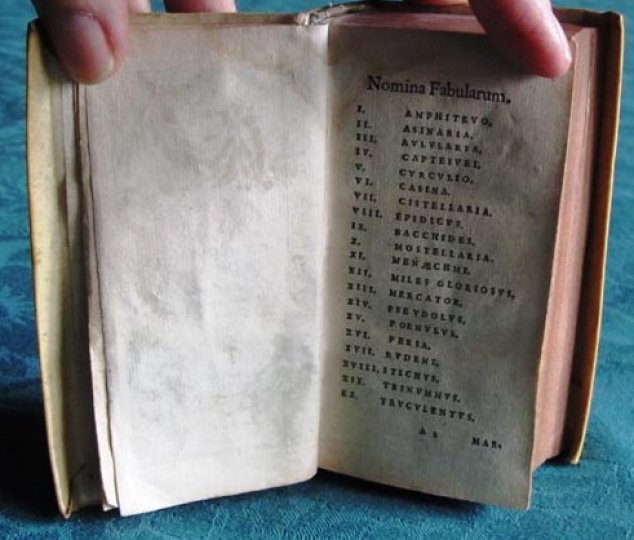 Nomina Fabularum.
I. AMPHITRVO.
II. ASINARIA.
III. AVLVLARIA.
IV. CAPTEIVEI.
V. CVRCVLIO.
VI. CASINA.
VII. CISTELLARIA.
VIII. EPIDICVS.
IX. BACCHIDES.
X. MOSTELLARIA.
XI. MENÆCHMI.
XII. MILES GLORIOSVS.
XIII. MERCATOR.
XIV. PSEVDOLVS.
XV. POENVLVS.
XVI. PERSA.
XVII. RVDENS.
XVIII. STICHVS.
XIX. TRINVMMVS.
XX. TRVCVLENTVS.
MAR.